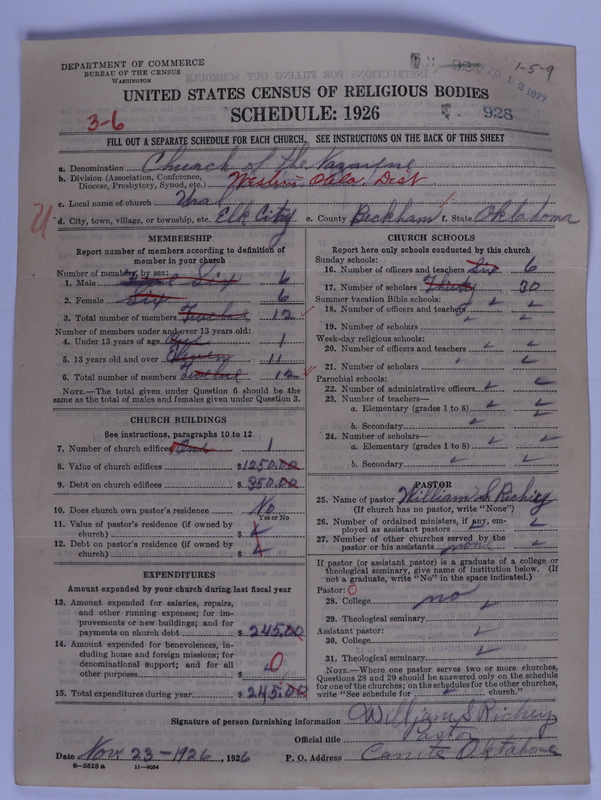 DEPARTMENT OF COMMERCE
BUREAU OF THE CENSUS
WASHINGTON
1-5-9
UNITED STATES CENSUS OF RELIGIOUS BODIES
SCHEDULE: 1926
928
3-6
FILL OUT A SEPARATE SCHEDULE FOR EACH CHURCH. SEE INSTRUCTIONS ON THE BACK OF THIS SHEET
a. Denomination Church of the Nazarene
b. Division (Association, Conference, Diocese, Presbytery, Synod, etc.) Western Okla. Dist
c. Local name of church Ural
d. City, town, village, or township, etc. Elk City e. County Beckham f. State Oklahoma
MEMBERSHIP
Report number of members according to definition of member in your church
Number of members, by sex:
1. Male Six 6
2. Female Six 6
3. Total number of members Twelve 12
Number of members under and over 13 years old:
4. Under 13 years of age One 1
5. 13 years old and over Eleven 11
6. Total number of members Twelve 12
NOTE.—The total given under Question 6 should be the same as the total of males and females given under Question 3.
CHURCH BUILDINGS
See instructions, paragraphs 10 to 12
7. Number of church edifices One 1
8. Value of church edifices $1250.00
9. Debt on church edifices $350.00
10. Does church own pastor's residence No
Yes or No
11. Value of pastor's residence (if owned by church) $
12. Debt on pastor's residence (if owned by church) $
EXPENDITURES
Amount expended by your church during last fiscal year
13. Amount expended for salaries, repairs, and other running expenses; for improvements or new buildings; and for payments on church debt $245.00
14. Amount expended for benevolences, including home and foreign missions; for denominational support; and for all other purposes $ 0
15. Total expenditures during year $245.00
CHURCH SCHOOLS
Report here only schools conducted by this church
Sunday schools:
16. Number of officers and teachers Six 6
17. Number of scholars Thirty 30
Summer vacation Bible schools:
18. Number of officers and teachers
19. Number of scholars
Week-day religious schools:
20. Number of officers and teachers
21. Number of scholars
Parochial schools:
22. Number of administrative officers
23. Number of teachers—
a. Elementary (grades 1 to 8)
b. Secondary
24. Number of scholars—
a. Elementary (grades 1 to 8)
b. Secondary
PASTOR
25. Name of pastor William S. Richey
(If church has no pastor, write "None")
26. Number of ordained ministers, if any, employed as assistant pastors
27. Number of other churches served by the pastor or his assistants none
If pastor (or assistant pastor) is a graduate of a college or theological seminary, give name of institution below. (If not a graduate, write "No" in the space indicated.)
Pastor: 0
28. College no
29. Theological seminary
Assistant pastor:
30. College
31. Theological seminary
NOTE.—Where one pastor serves two or more churches, Questions 28 and 29 should be answered only on the schedule for one of the churches; on the schedules for the other churches, write "See schedule for church."
Signature of person furnishing information William S. Richey
Official title Pastor
Date Nov. 23-1926, 1926 P. O. Address Canute Oklahoma
8-5518a 11-9054